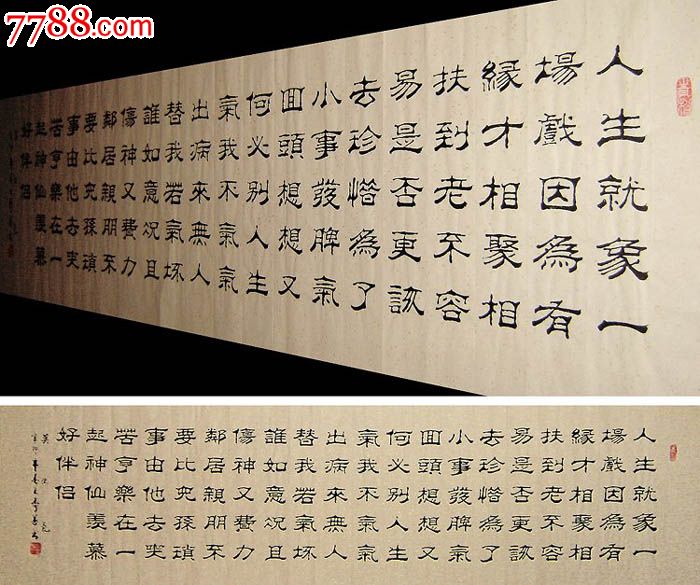 7788.com
人生就象一
場戲因為有
緣才相聚相
扶到老不容
易是否更該
去珍惜為了
小事發脾氣
回頭想想又
何必別人生
氣我不氣氣
出病來無人
替我若氣坏
誰如意況且
傷神又費力
鄰居親朋不
要比兒孫瑣
事由他去
苦亨樂在一
起神仙羨慕
好伴侶
人生就象一
場戲因為有
緣才相聚相
扶到老不容
易是否更該
去珍惜為了
小事發脾氣
回頭想想又
何必別人生
氣我不氣氣
出病來無人
替我若氣坏
誰如意況且
傷神又費力
鄰居親朋不
要比兒孫瑣
事由他去
苦亨樂在一
起神仙羨慕
好伴侶